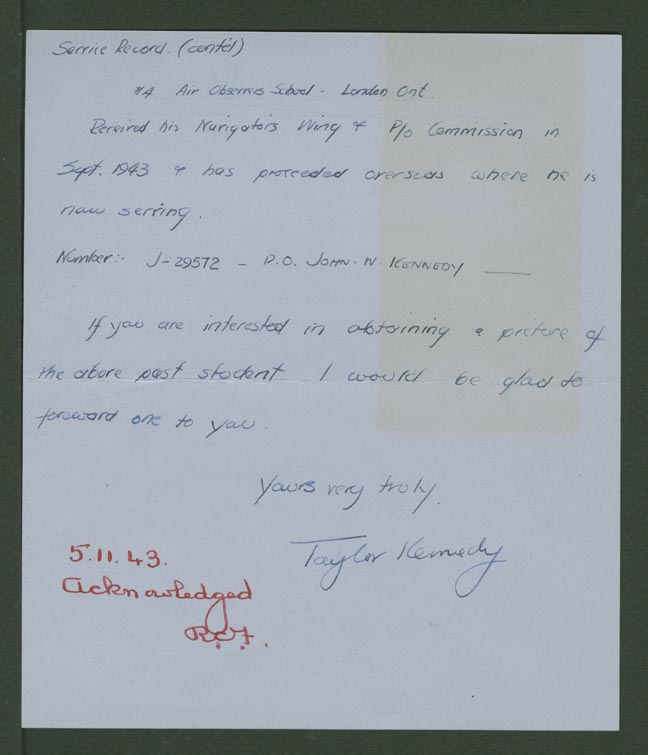 Service Record. (cont'd)
#4 Air Observers School - London Ont.
Received his Navigators Wing & P/o Commission in
Sept. 1943 & has proceeded overseas where he is
now serving.
Number:- J-29572 - P.O. JOHN. W. KENNEDY
If you are interested in obtaining a picture of
the above past student I would be glad to
foreward one to you.
Yours very truly.
Taylor Kennedy
5.11.43.
Acknowledged